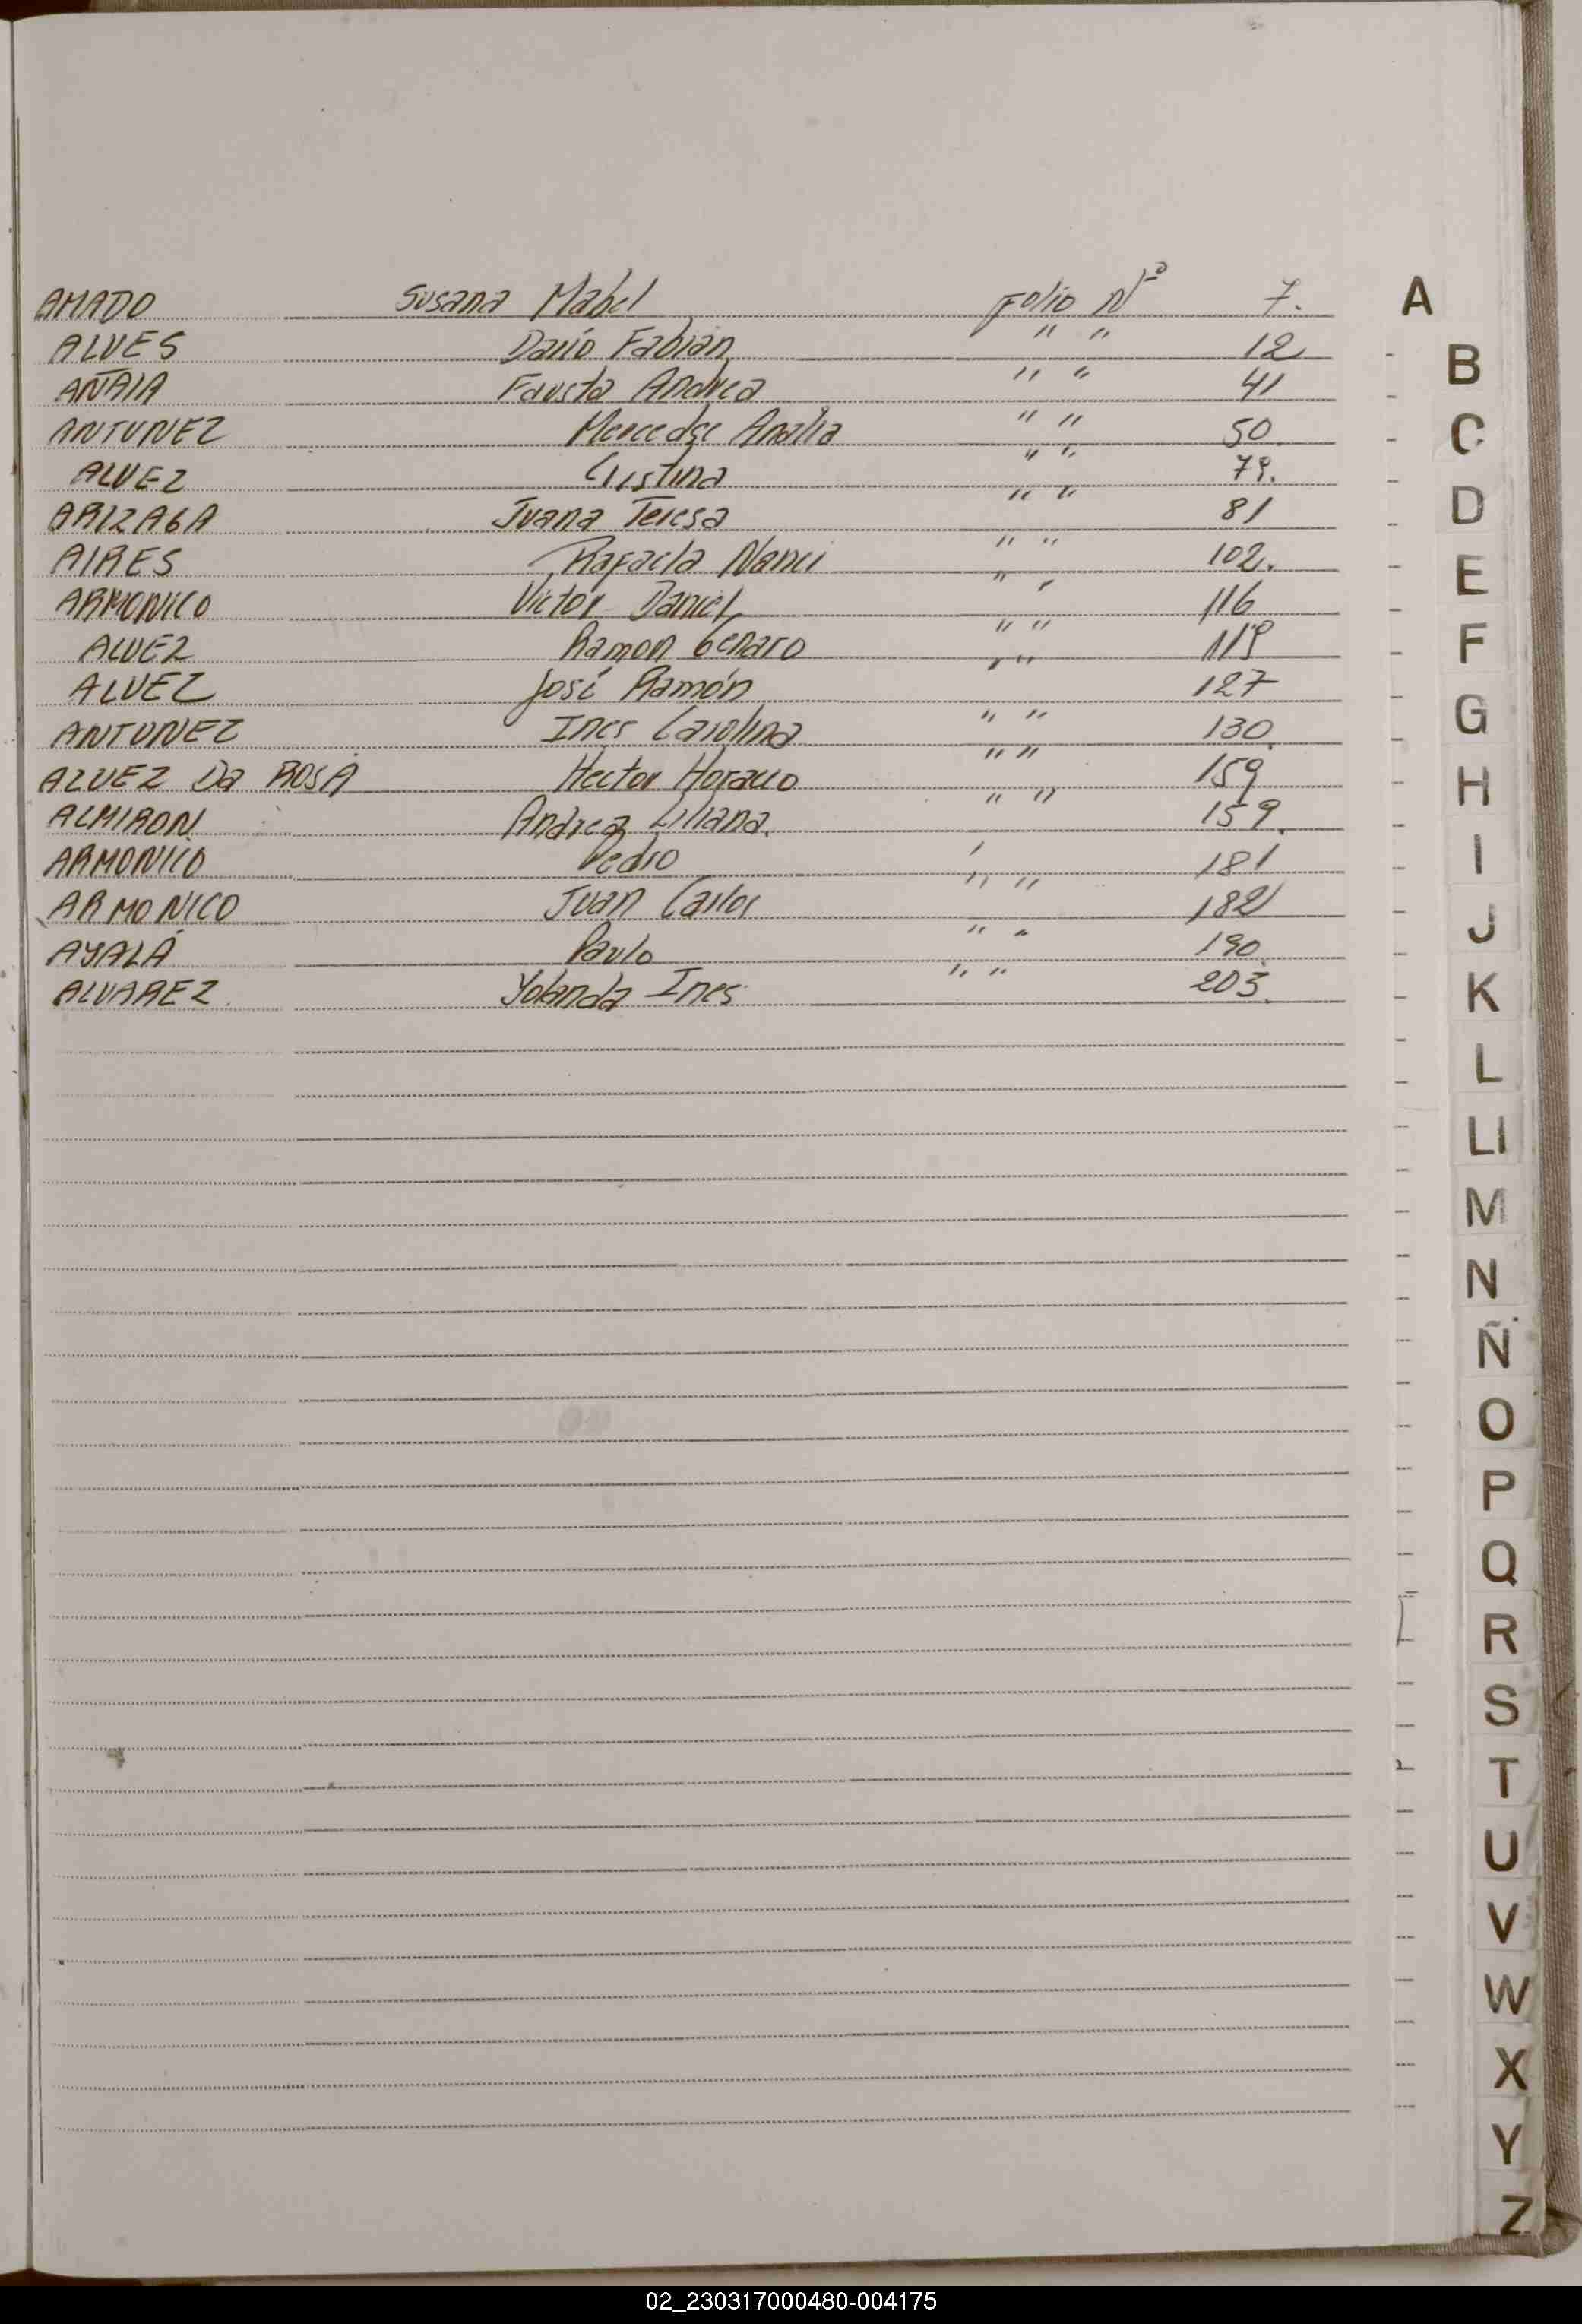 AMADO Susana Mabel Folio Nº 7. A
ALVES Darío Fabián " " 12
B
AÑAIA Fausta Andrea " " 41
ANTUNEZ Mercedse Analia " " 50.
C
ALVEZ Cristina " " 79.
ARIZAGA Juana Teresa " " 81
D
AIRES Rafaela Nanci " " 102.
E
ARMONICO Victor Daniel " " 116
ALVEZ Ramon Genaro " " 119
F
ALVEZ José Ramón " " 127
G
ANTUNEZ Ines Carolina " " 130.
ALVEZ Da ROSA Hector Horacio " " 159
H
ALMIRON Andrea Liliana. " " 159.
ARMONICO Pedro " 181
I
ARMONICO Juan Carlos " " 182
J
AYALA Paulo " " 190.
ALVAREZ Yolanda Ines " " 203.
K
L
Ll
M
N
Ñ
O
P
Q
R
S
T
U
V
W
X
Y
Z
02_230317000480-004175